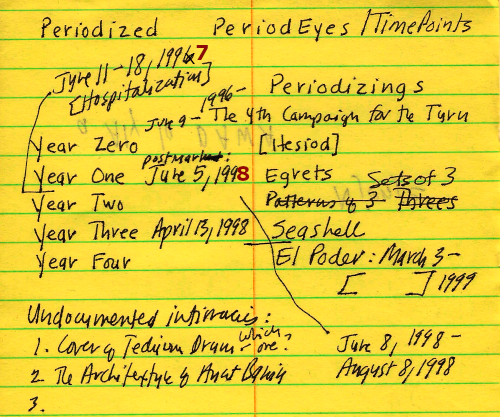 Periodized PeriodEyes/TimePoints
June 11-18, 1997
[Hospitalization]
Periodizings
1996-
June 9- The 4th Campaign for the Turn
Year Zero [Hesiod]
postmark:
Year One June 5, 1998 Egrets Sets of 3
Year Two Patterns of 3 Threes
Year Three April 13, 1998 Seashell
Year Four El Poder: March 3-
[ ] 1999
Undocumented intimacies:
1. Cover of Tedium Drum - which one? June 8, 1998-
2. The Architexture of August 8, 1998
3.